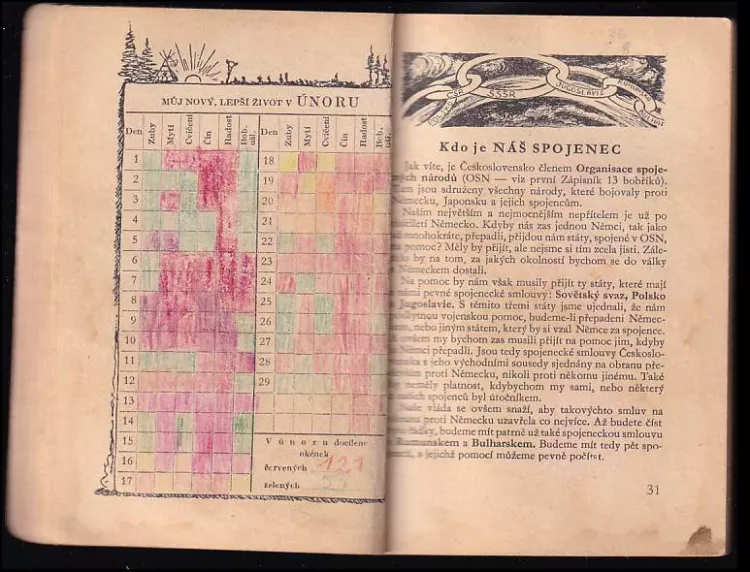 MŮJ NOVÝ, LEPŠÍ ŽIVOT V ÚNORU
Den Zuby Mytí Cvičení Čin Radost Bob. Den Zuby Mytí Cvičení Čin Radost Bob.
1 18
2 19
3 20
4 21
5 22
6 23
7 24
8 25
9 26
10 27
11 28
12 29
13
14
15
16
17
V únoru docíleno
okének
červených 121
zelených
ČSR SSSR JUGOSLAVIE
Kdo je NÁŠ SPOJENEC
Jak víte, je Československo členem Organisace spoje-
národů (OSN — viz první Zápisník 13 bobříků).
jsou sdruženy všechny národy, které bojovaly proti
Německu, Japonsku a jejich spojencům.
Naším největším a nejmocnějším nepřítelem je už po
Německo. Kdyby nás zas jednou Němci, tak jako
přepadli, přijdou nám státy, spojené v OSN,
na pomoc? Měly by přijít, ale nejsme si tím zcela jisti. Zále-
by na tom, za jakých okolností bychom se do války
s Německem dostali.
Na pomoc by nám však musily přijít ty státy, které mají
s námi pevné spojenecké smlouvy: Sovětský svaz, Polsko
a Jugoslavie. S těmito třemi státy jsme ujednali, že nám
vojenskou pomoc, budeme-li přepadeni Němec-
nebo jiným státem, který by si vzal Němce za spojence.
my bychom zas musili přijít na pomoc jim, kdyby
Němci přepadli. Jsou tedy spojenecké smlouvy Českoslo-
s jeho východními sousedy sjednány na obranu pře-
Německu, nikoli proti někomu jinému. Také
neměly platnost, kdybychom my sami, nebo některý
spojenců byl útočníkem.
Naše vláda se ovšem snaží, aby takovýchto smluv na
proti Německu uzavřela co nejvíce. Až budete číst
řádky, budeme mít patrně už také spojeneckou smlouvu
s Rumunskem a Bulharskem. Budeme mít tedy pět spo-
s jejichž pomocí můžeme pevně počítat.
31